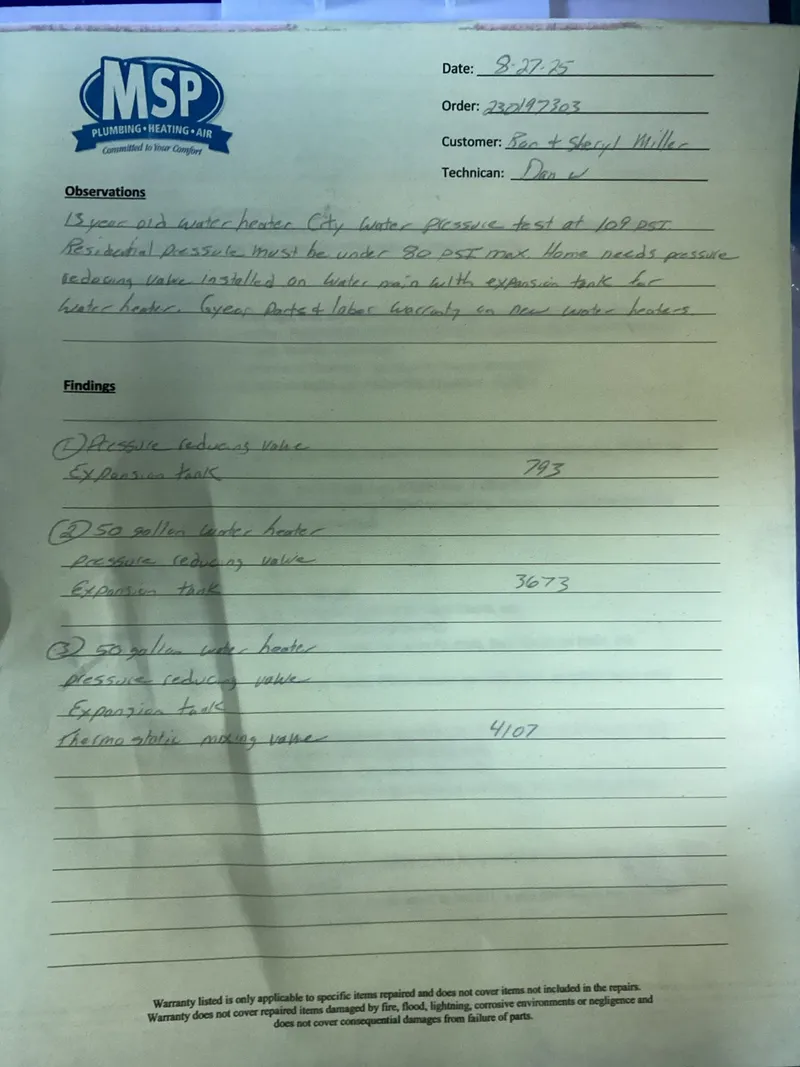 MSP
PLUMBING • HEATING • AIR
Committed to Your Comfort
Date: 8-27-25
Order: 230197303
Customer: Ron + Sheryl Miller
Technican: Dan W
Observations
13 year old water heater City water pressure test at 109 PSI.
Residential pressure must be under 80 PSI max. Home needs pressure
reducing valve installed on water main with expansion tank for
water heater. 6 year parts & labor warranty on new water heaters.
Findings
① Pressure reducing valve
Expansion tank 793
② 50 gallon water heater
pressure reducing valve
Expansion tank 3673
③ 50 gallon water heater
pressure reducing valve
Expansion tank
Thermo static mixing valve 4107
Warranty listed is only applicable to specific items repaired and does not cover items not included in the repairs.
Warranty does not cover repaired items damaged by fire, flood, lightning, corrosive environments or negligence and
does not cover consequential damages from failure of parts.